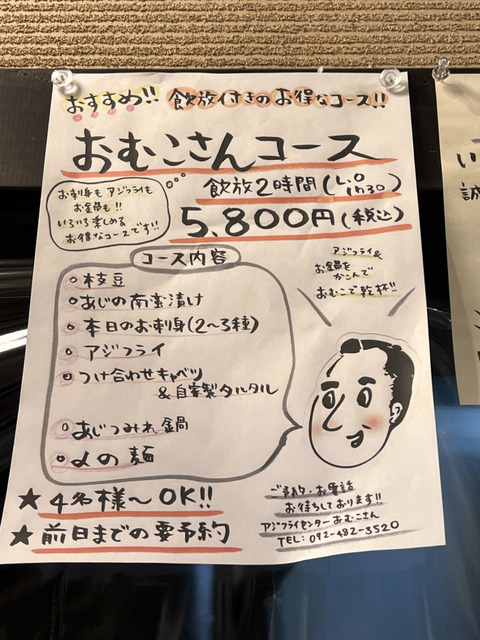 おすすめ!! 飲放付きのお得なコース!!
おむこさんコース
飲放2時間(L.O 1h30)
5,800円(税込)
お刺身もアジフライも
お鍋も!!
いろいろ楽しめる
お得なコースです!!
コース内容
枝豆
あじの南蛮漬け
本日のお刺身(2~3種)
アジフライ
つけ合わせキャベツ
&自家製タルタル
あじつみれ鍋
〆の麺
アジフライ&
お鍋を
かこんで
おむこで乾杯!!
★4名様~OK!!
★前日までの要予約
ご予約・お電話
お待ちしております!!
アジフライセンターおむこさん
TEL: 092-482-3520
い
誠